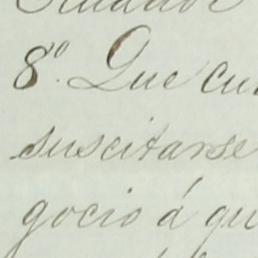 8º. Que cu
suscitarse
gocio á qu